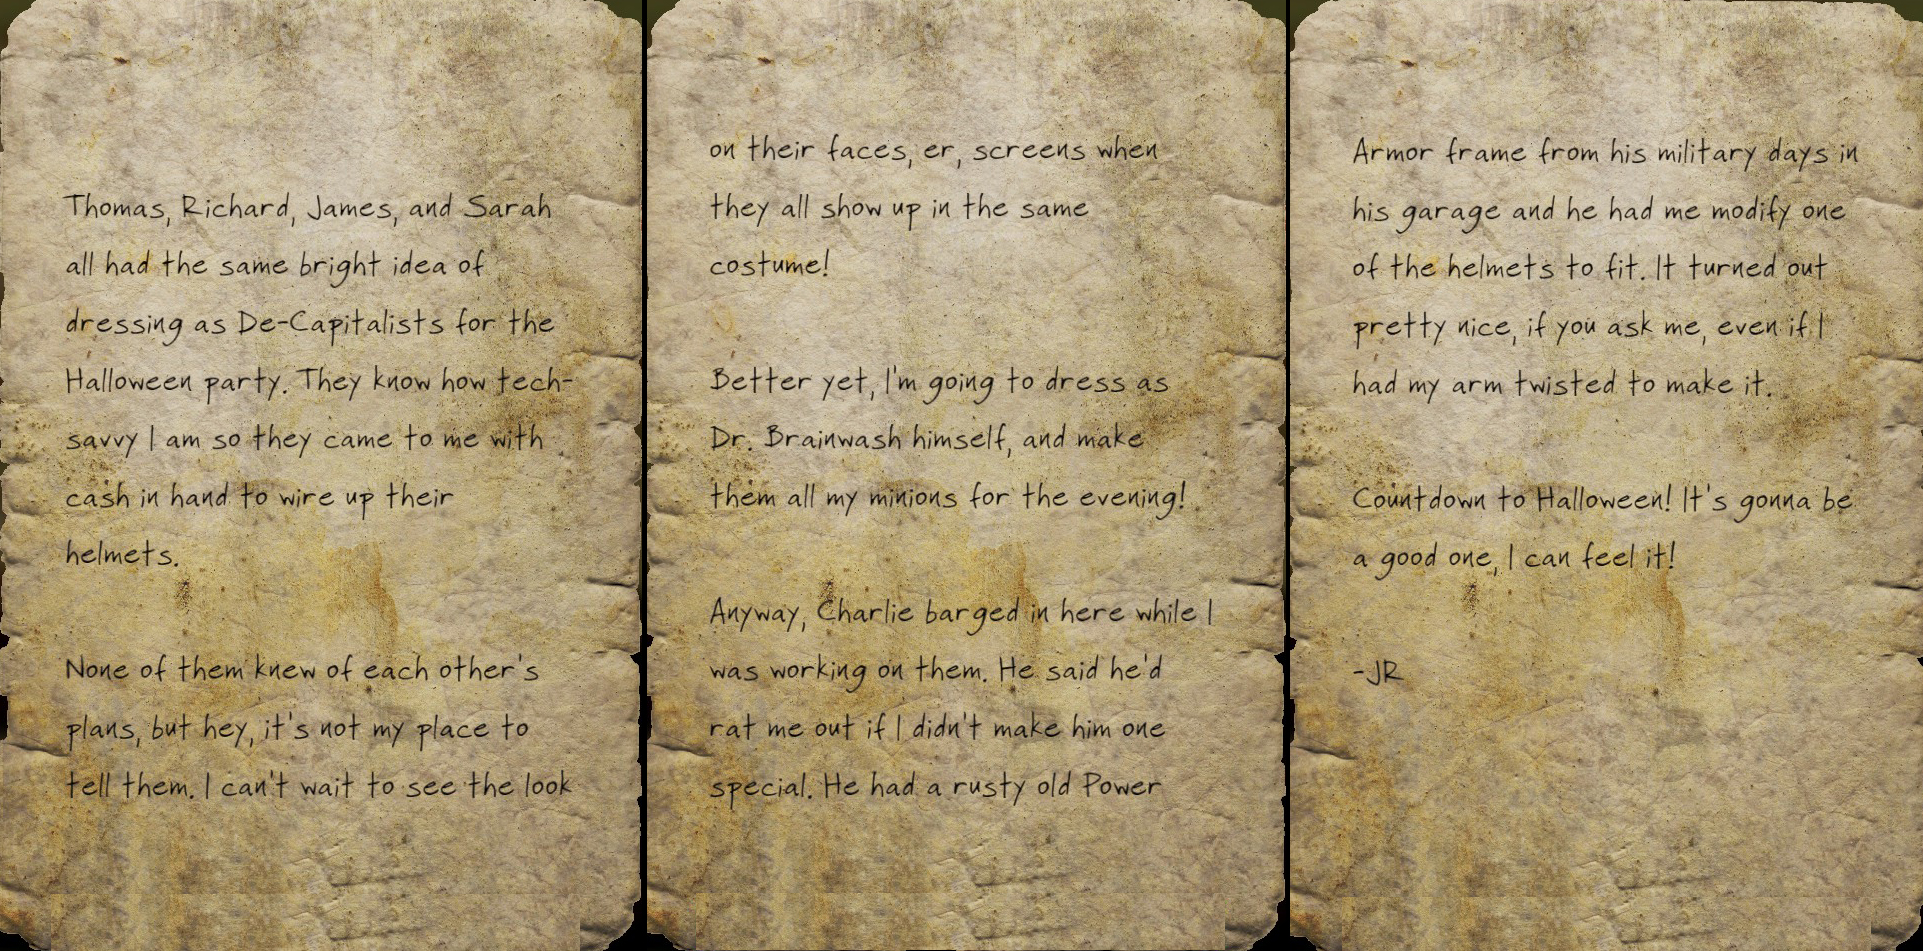 Thomas, Richard, James, and Sarah
all had the same bright idea of
dressing as De-Capitalists for the
Halloween party. They know how tech-
savvy I am so they came to me with
cash in hand to wire up their
helmets.
None of them knew of each other's
plans, but hey, it's not my place to
tell them. I can't wait to see the look
on their faces, er, screens when
they all show up in the same
costume!
Better yet, I'm going to dress as
Dr. Brainwash himself, and make
them all my minions for the evening!
Anyway, Charlie barged in here while I
was working on them. He said he'd
rat me out if I didn't make him one
special. He had a rusty old Power
Armor frame from his military days in
his garage and he had me modify one
of the helmets to fit. It turned out
pretty nice, if you ask me, even if I
had my arm twisted to make it.
Countdown to Halloween! It's gonna be
a good one, I can feel it!
-JR